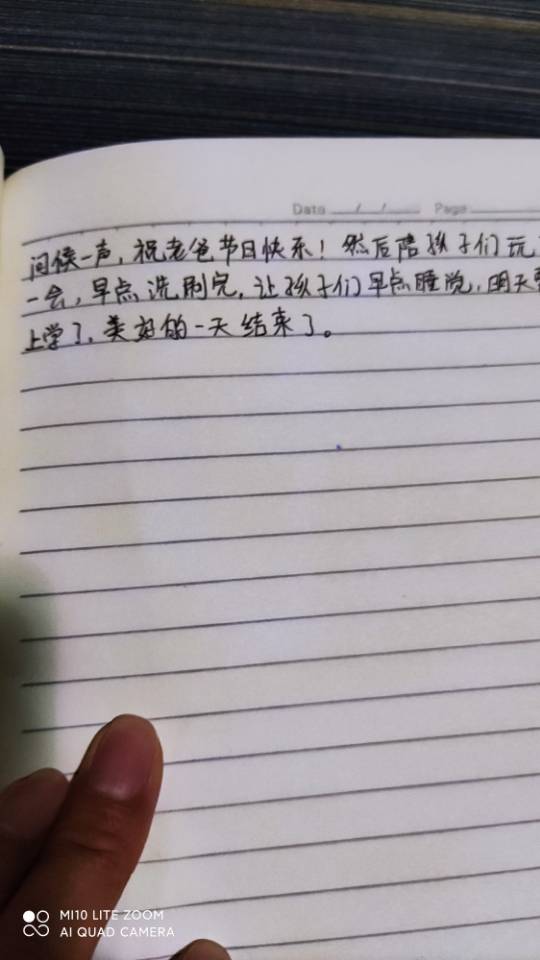 Date / / Page
问候一声，祝老爸节日快乐！然后陪孩子们玩
一会，早点洗刷完，让孩子们早点睡觉，明天要
上学了，美好的一天结束了。
MI10 LITE ZOOM
AI QUAD CAMERA